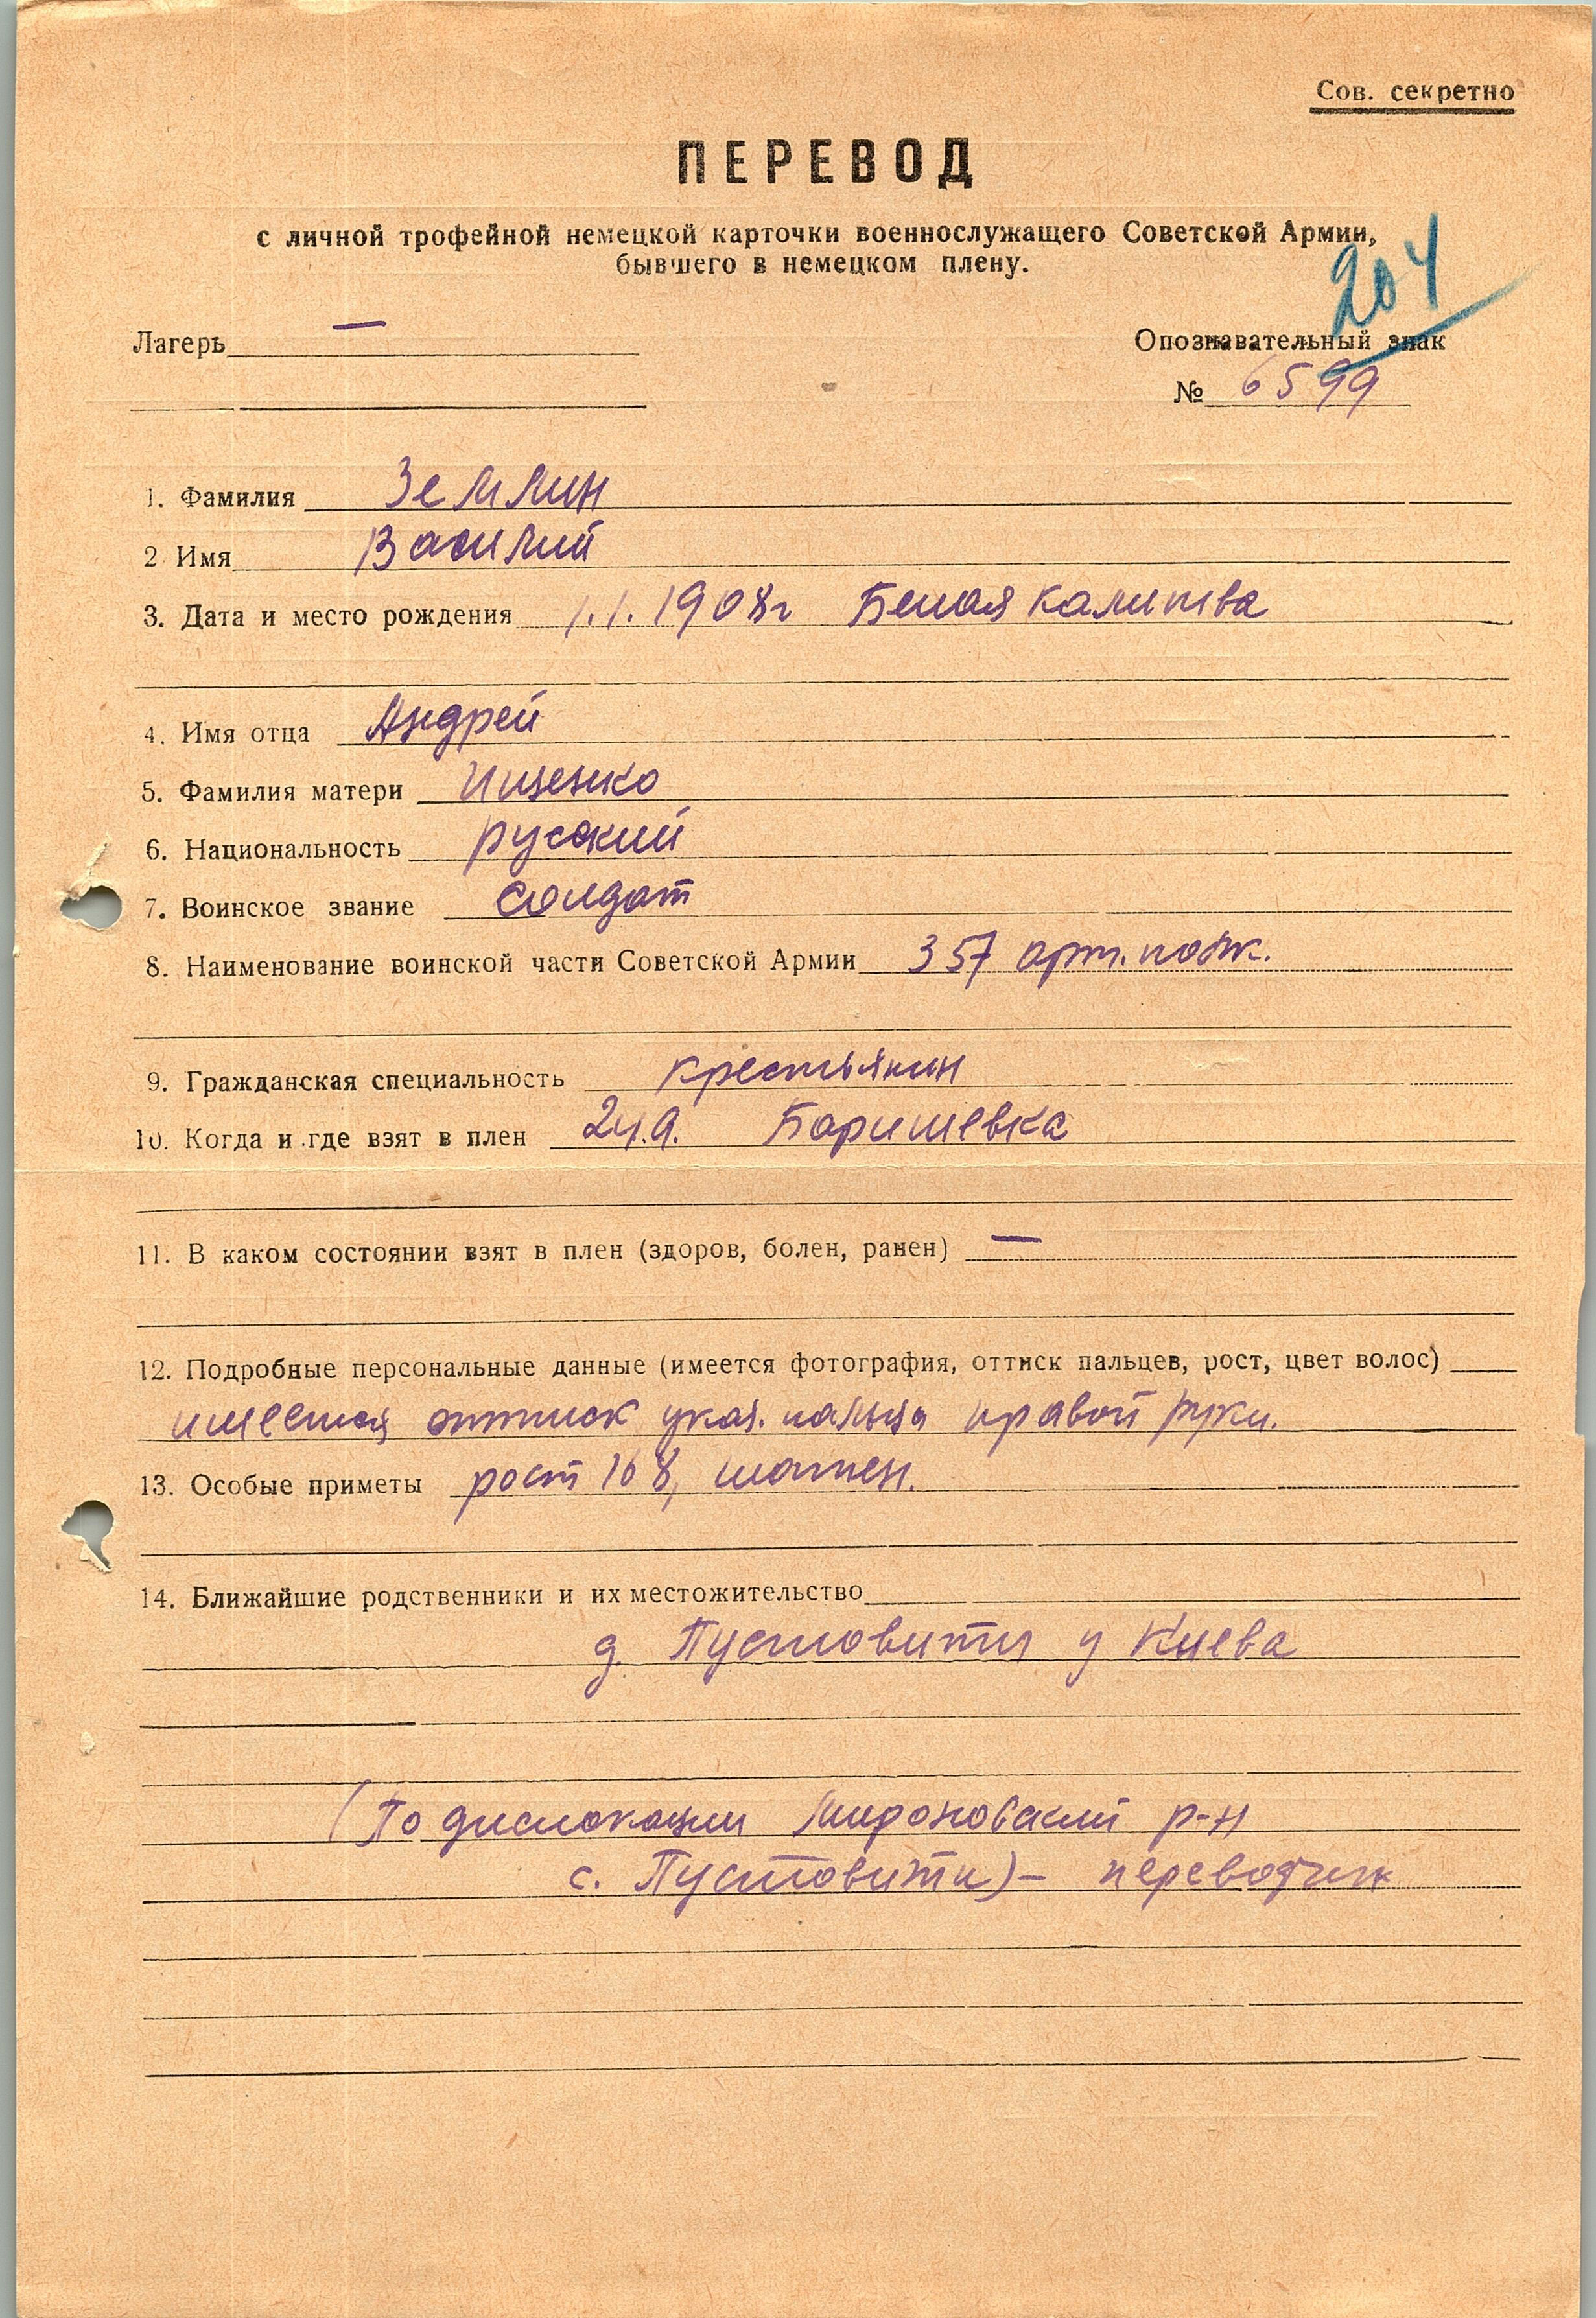 Сов. секретно
ПЕРЕВОД
с личной трофейной немецкой карточки военнослужащего Советской Армии,
бывшего в немецком плену.
204
Лагерь —
Опознавательный знак
№ 6599
1. Фамилия Землин
2 Имя Василий
3. Дата и место рождения 1.1.1908г Белая Калитва
4. Имя отца Андрей
5. Фамилия матери Ищенко
6. Национальность русский
7. Воинское звание солдат
8. Наименование воинской части Советской Армии 357 арт. полк.
9. Гражданская специальность крестьянин
10. Когда и где взят в плен 24.9. Баришевка
11. В каком состоянии взят в плен (здоров, болен, ранен) —
12. Подробные персональные данные (имеется фотография, оттиск пальцев, рост, цвет волос)
имеется оттиск указ. пальца правой руки.
13. Особые приметы рост 168, шатен.
14. Ближайшие родственники и их местожительство
д. Пустовиты у Киева
(По дислокации Мироновский р-н
с. Пустовиты) – переводчик